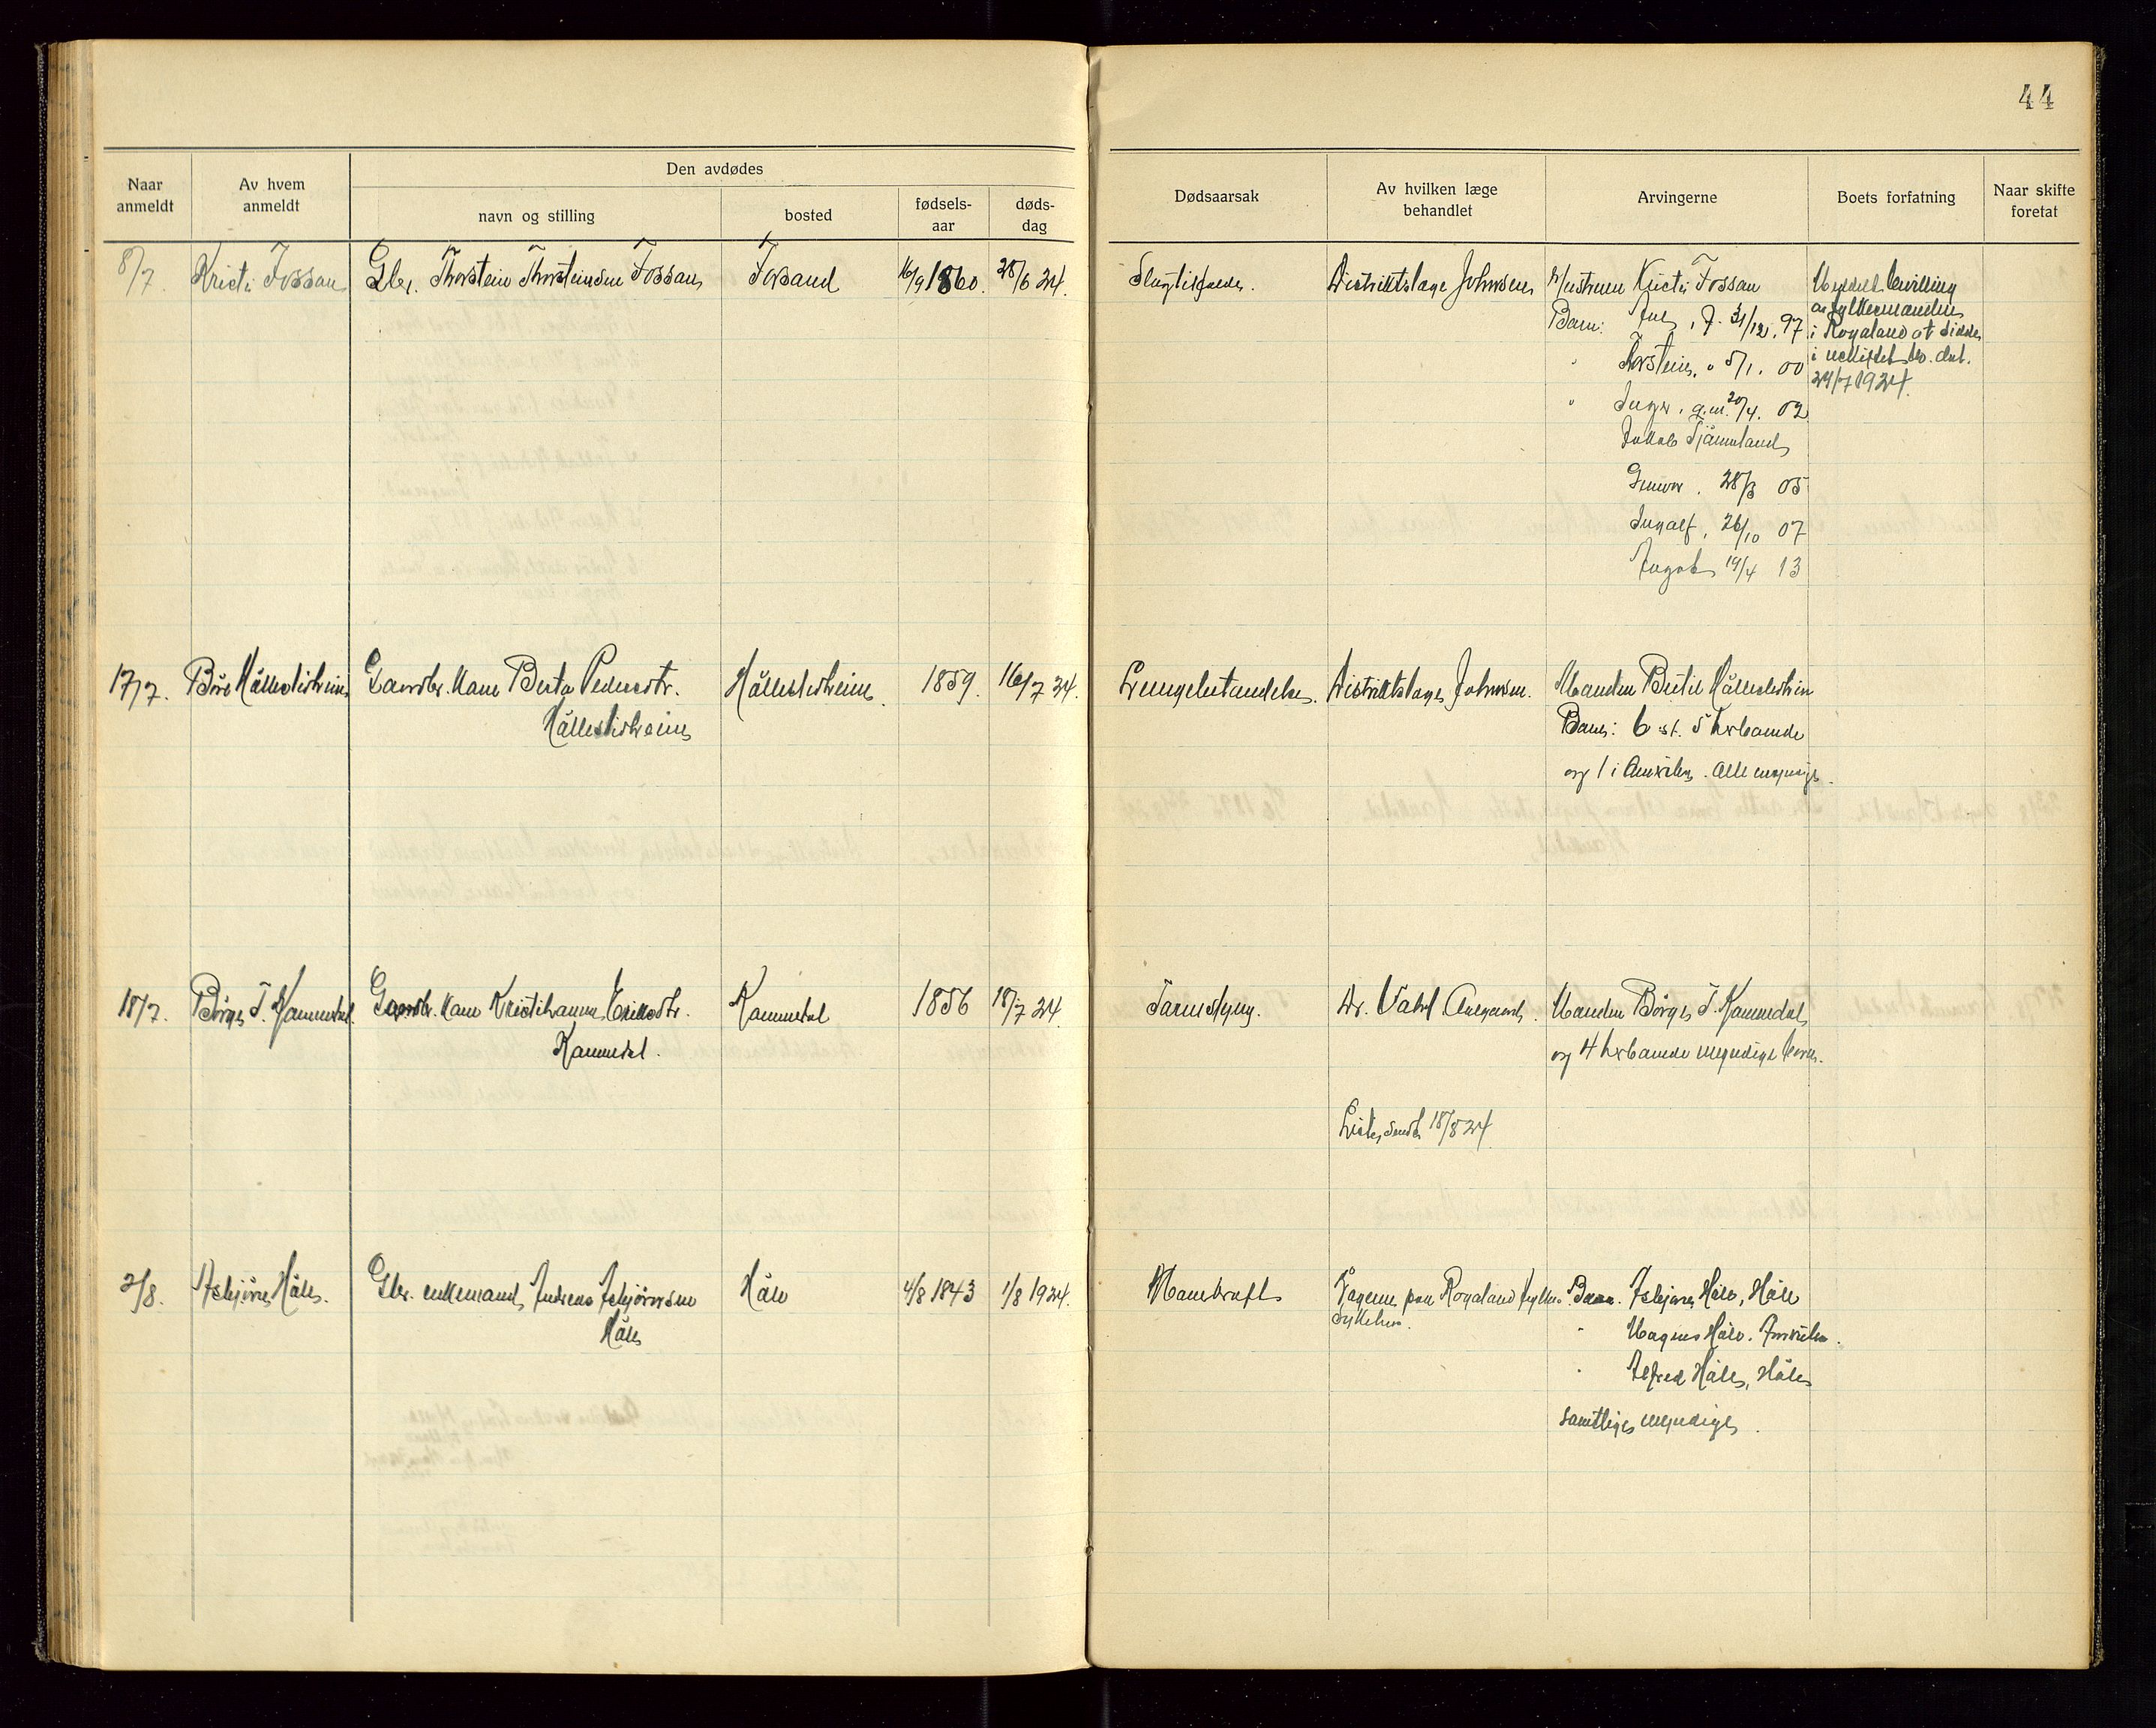 44
Den avdødes
Naar anmeldt
Av hvem anmeldt
navn og stilling
bosted
fødsels-aar
døds-dag
Dødsaarsak
Av hvilken læge behandlet
Arvingerne
Boets forfatning
Naar skifte foretat
8/7. Kristi Fossan Gbr. Thorstein Thorsteinsen Fossan Fossand 16/9 1860. 28/6 24. Distriktslæge Johnsen Hustruen Kristi Fossan
Barn: , f. 31/12. 97.
" Torstein, " 5/1. 00
" Inger, g.m. 20/4. 02
Jakob Tjåmeland
Gunvor. 28/3 05
Ingolf, 26/10 07
19/4 13
Meddelt bevilling
av fylkesmanden
i Rogaland at sidde
i uskiftet bo. dat.
24/7 1924.
17/7. Hållesliheim Gaardbr. kone Berta Pedersdtr. 1859. 16/7 24. Lungebetændelse. Distriktslæge Johnsen. Manden Bertil
Barn: 6 st. 5 herboende
og 1 i Amerika. Alle myndige.
18/7. Børge T. Kommedal. Gaardbr. kone Kristihanna Eriksdtr. Kommedal 1856 18/7 24. Tarmslyng. Dr. Vahl Aalgaard. Manden Børge T. Kommedal
Kommedal. og 4 herboende myndige børn.
Liste sendt 18/8 24
2/8. Asbjørn Håle. Gbr. enkemand Andreas Asbjørnsen Håle 4/8 1843 1/8 1924. Mavekræft Lægerne paa Rogaland fylkes Barn. Asbjørn Håle, Håle
Håle sykehus. " Magnus Håle. Amerika.
" Alfred Håle, Håle
samtlige myndige.